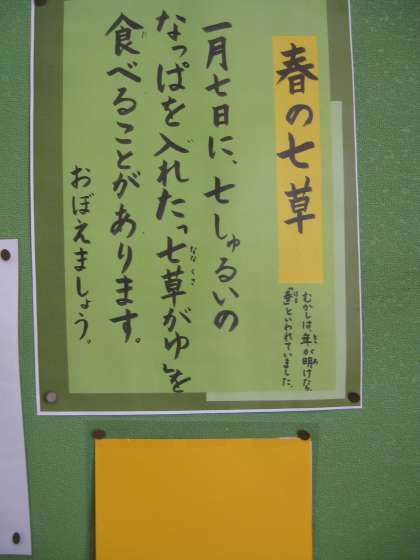 春の七草
むかしは、年が明け
「春」といわれていました。
一月七日に、七しゅるいの
なっぱを入れた「七草がゆ」を
食べることがあります。
おぼえましょう。